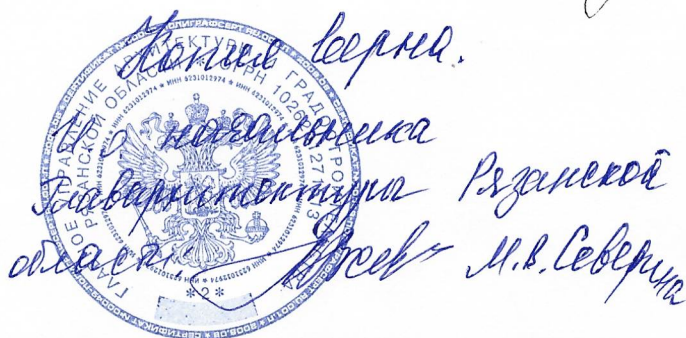 Копия верна.
И.о начальника
Главархитектуры Рязанской
области М.В. Северина
ГЛАВНОЕ УПРАВЛЕНИЕ АРХИТЕКТУРЫ И ГРАДОСТРОИТЕЛЬСТВА
РЯЗАНСКОЙ ОБЛАСТИ * ОГРН
* ИНН 6231012974 * ИНН 6231012974 * ИНН 6231012974
*2*